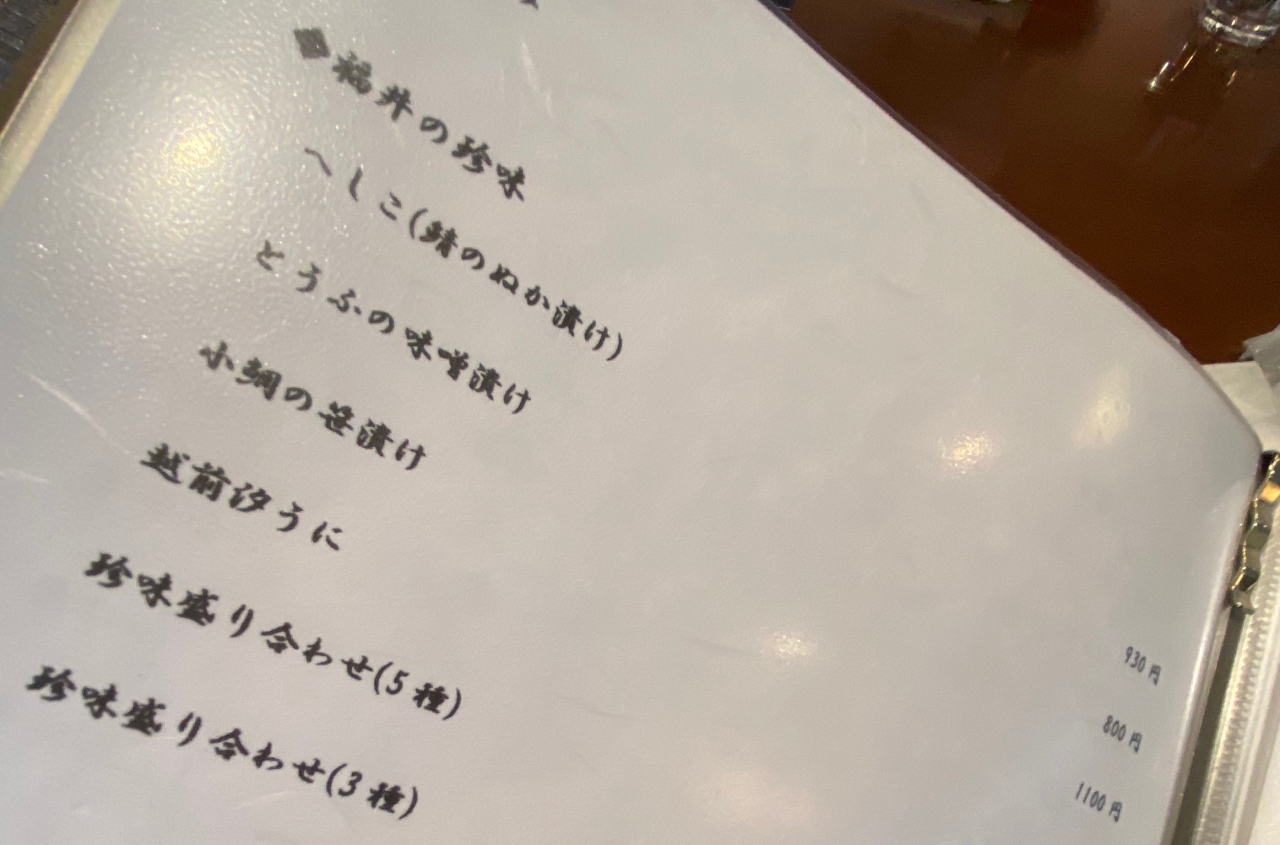 ◆福井の珍味
へしこ(鯖のぬか漬け) 930円
とうふの味噌漬け 800円
小鯛の笹漬け 1100円
越前汐うに
珍味盛り合わせ(5種)
珍味盛り合わせ(3種)